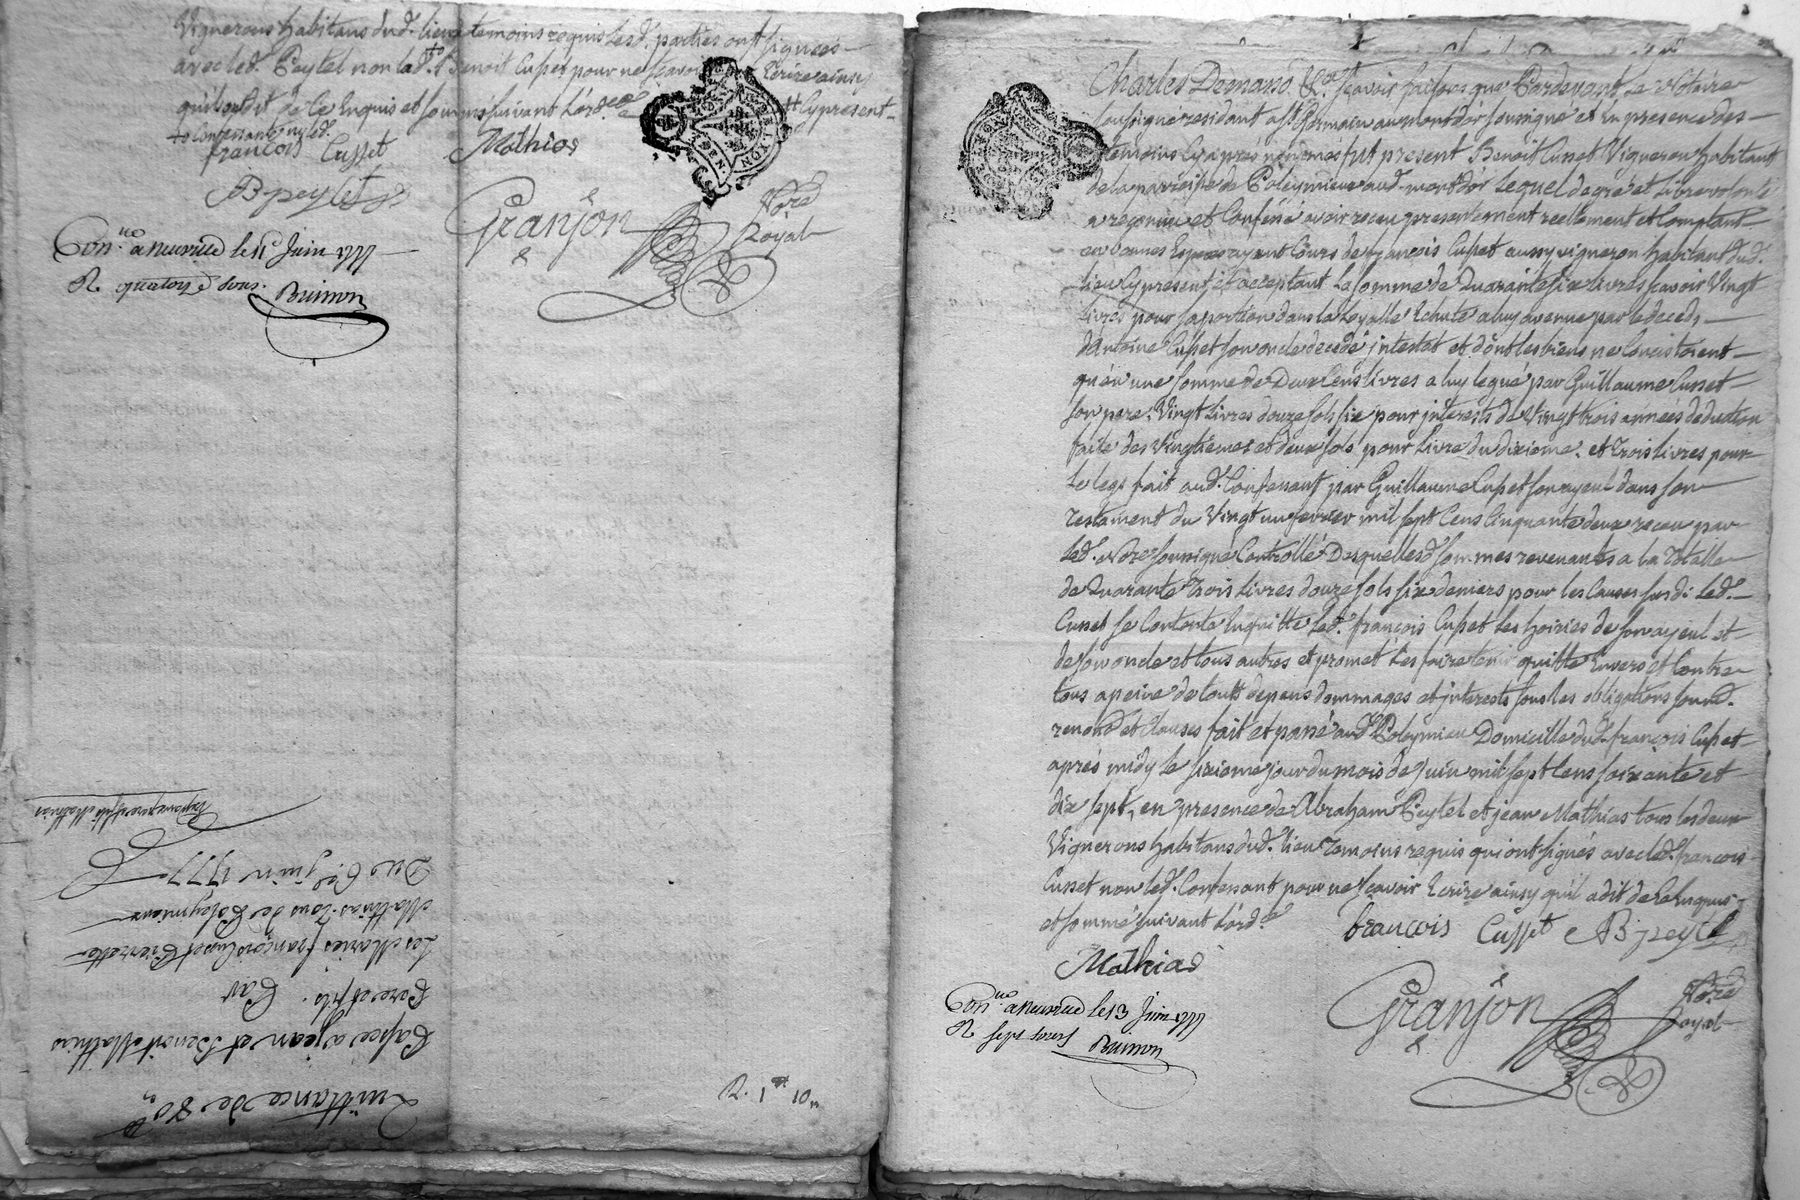 Vignerons habitans dud. lieux temoins requis lesd. parties ont signées
avec led. Peytel non lad. Benoit Cusset pour ne sçavoir Ecrire ainsy
qu'ils ont dit de ce Enquis et sommés suivant l'ord.ce ++ Cypresent
françois Cusset Mathias
ABpeytel
Granjon Nore Royal
Con.lle a neuville le 13 Juin 1777
R quatorze sous. Buimon
R. 1 10
Quittance de 80
Passée a jean et Benoit Mathias
Pere et fils. Par
Les Mariés françois Cusset et Pierrette
Mathias. Tous de Poleymieux
Du 6e juin 1777
Charles Demand. &.a sçavoir faisons que Pardevant Le Notaire
soussigné residant a St. Germain au mont d'or soussigné et En presence des
temoins Cy après nommés fut present Benoit Cusset Vigneron habitant
de la parroisse de Poleymieux aud. mont d'or Lequel de gré et libre volonté
a reconnu et Confessé avoir receu presentement reellement et Comptant
en bonnes Especes ayant Cours de françois Cusset aussy vigneron habitant dud.
lieu Cy present et acceptant La somme de Quarante six livres scavoir Vingt
Livres pour sa portion dans la Loyalle Echute a luy avenue par le deceds
d'Antoine Cusset son oncle decedé intestat et dont les biens ne Consistoient
qu'en une somme de Deux Cens livres a luy legué par Guillaume Cusset
son pere; Vingt livres douze sols six pour interests de Vingt trois années deduction
faite des Vingtiemes et deux sols pour Livre du dixieme, et Trois livres pour
Le legs fait aud. Confessant par Guillaume Cusset son ayeul dans son
Testament du Vingt un fevrier mil sept Cens Cinquante deux receu par
Led. Nore soussigné Controllé Desquelles d. sommes revenantes a la Totalle
de Quarante Trois Livres douze sols six deniers pour les Causes susd. Led.
Cusset se Contente En quitte Led. françois Cusset Les hoiries de son ayeul et
de son oncle et tous autres et promet Les faire tenir quitte Envers et Contre
tous a peine de touts depens dommages et interests sous les obligations soumd.
renond et Clauses fait et passé aud. Poleymieu Domicille dud. françois Cusset
après midy le sixieme jour du mois de Juin mil sept Cens soixante et
dix sept, en presence de Abraham Peytel et jean Mathias tous les deux
Vignerons habitans dud. lieu Temoins requis qui ont signés avec led. françois
Cusset non led. Confessant pour ne sçavoir Ecrire ainsy qu'il a dit de Ce Enquis
et sommé suivant L'ord.ce
françois Cusset ABpeytel
Mathias
Granjon Nore Royal
Con.lle a neuville le 13 Juin 1777
R sept sous Buimon